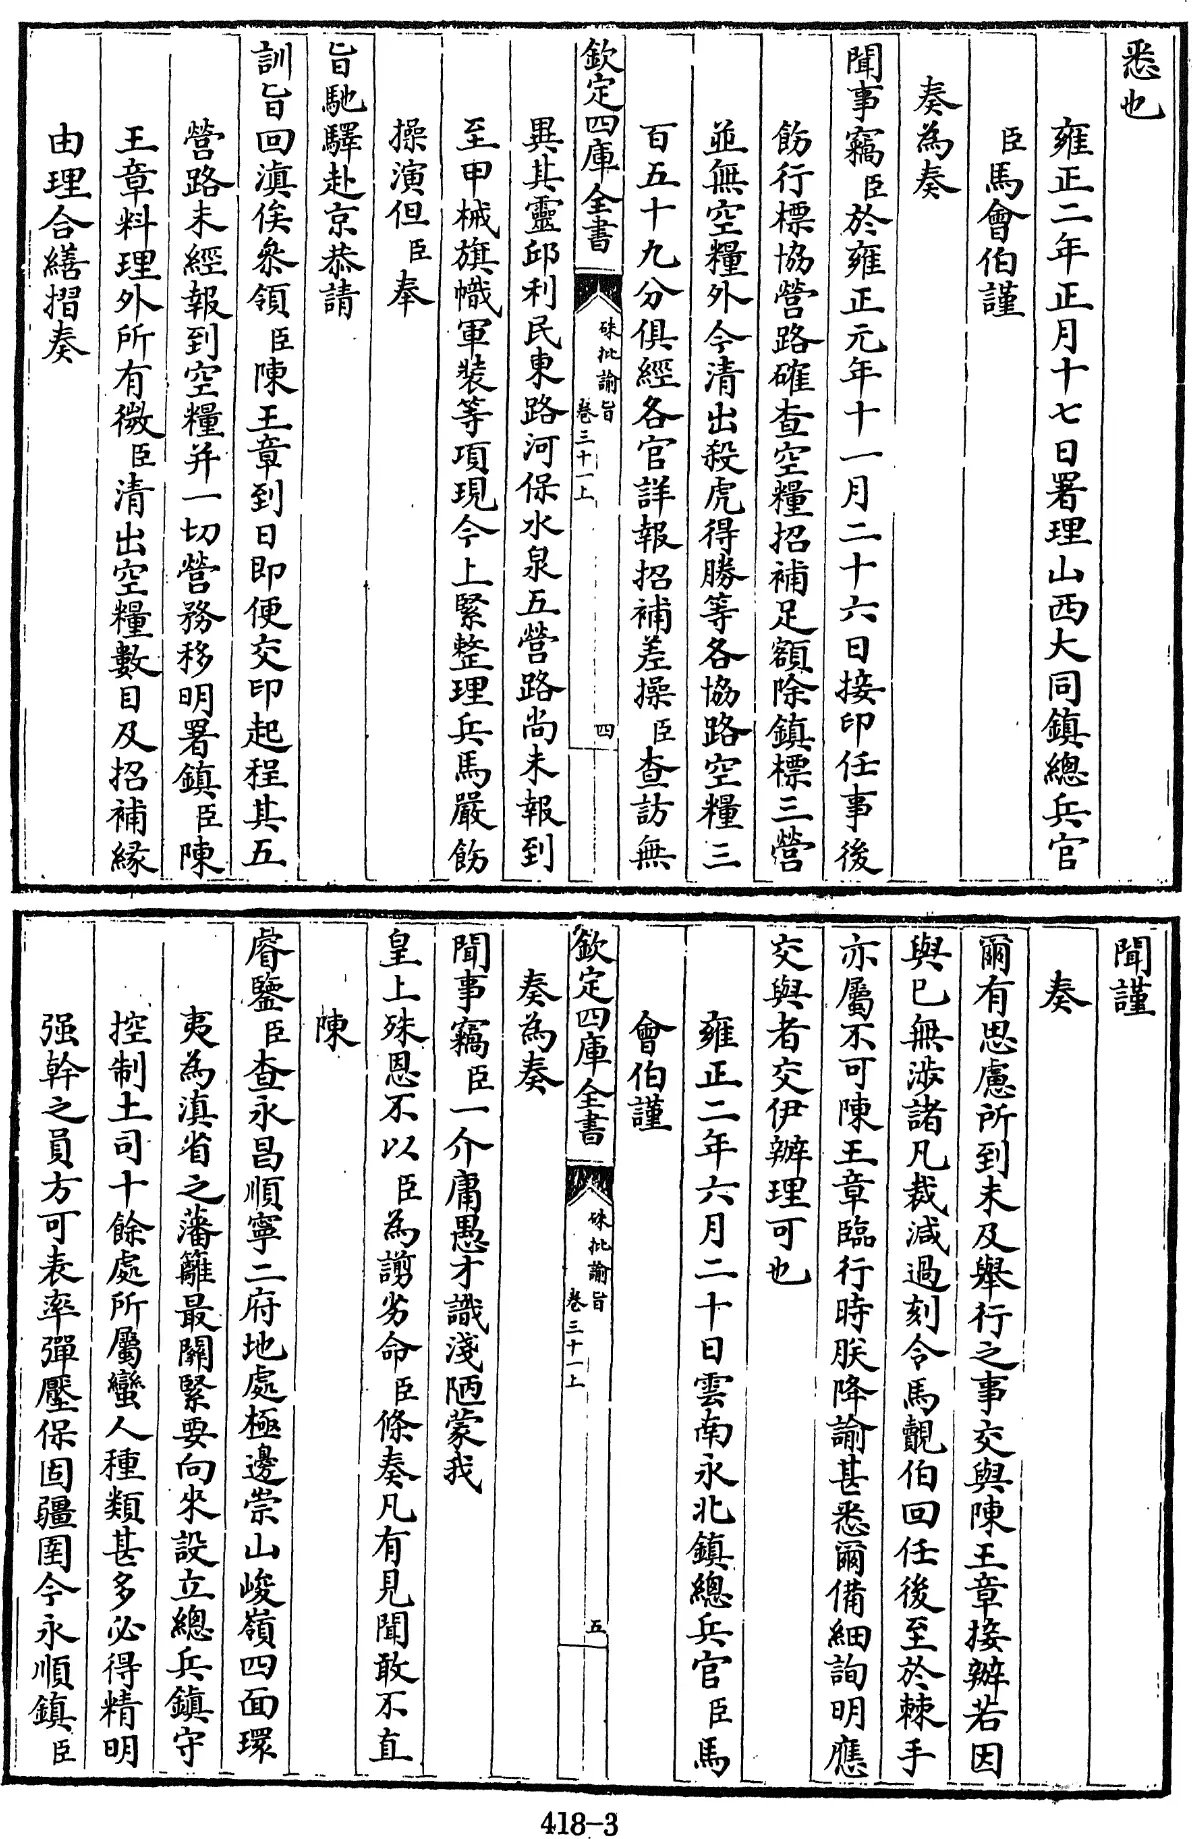 悉也
雍正二年正月十七日署理山西大同鎮總兵官
臣馬會伯謹
奏為奏
聞事竊臣於雍正元年十一月二十六日接印任事後
飭行標協營路確查空糧招補足額除鎮標三營
並無空糧外今清出殺虎得勝等各協路空糧三
百五十九分俱經各官詳報招補差操臣查訪無
欽定四庫全書
硃批諭旨
卷三十一上
四
異其靈邱利民東路河保水泉五營路尚未報到
至甲械旗幟軍裝等項現今上緊整理兵馬嚴飭
操演但臣奉
旨馳驛赴京恭請
訓旨回滇俟叅領臣陳王章到日即便交印起程其五
營路未經報到空糧并一切營務移明署鎮臣陳
王章料理外所有微臣清出空糧數目及招補緣
由理合繕摺奏
聞謹
奏
爾有思慮所到未及舉行之事交與陳王章接辦若因
與已無涉諸凡裁減過刻令馬覿伯回任後至於棘手
亦屬不可陳王章臨行時朕降諭甚悉爾備細詢明應
交與者交伊辦理可也
雍正二年六月二十日雲南永北鎮總兵官臣馬
會伯謹
奏為奏
欽定四庫全書
硃批諭旨
卷三十一上
五
聞事竊臣一介庸愚才識淺陋蒙我
皇上殊恩不以臣為謭劣命臣條奏凡有見聞敢不直
陳
睿鑒臣查永昌順寧二府地處極邊崇山峻嶺四面環
夷為滇省之藩籬最關緊要向來設立總兵鎮守
控制土司十餘處所屬蠻人種類甚多必得精明
强幹之員方可表率彈壓保固疆圉今永順鎮臣
418-3